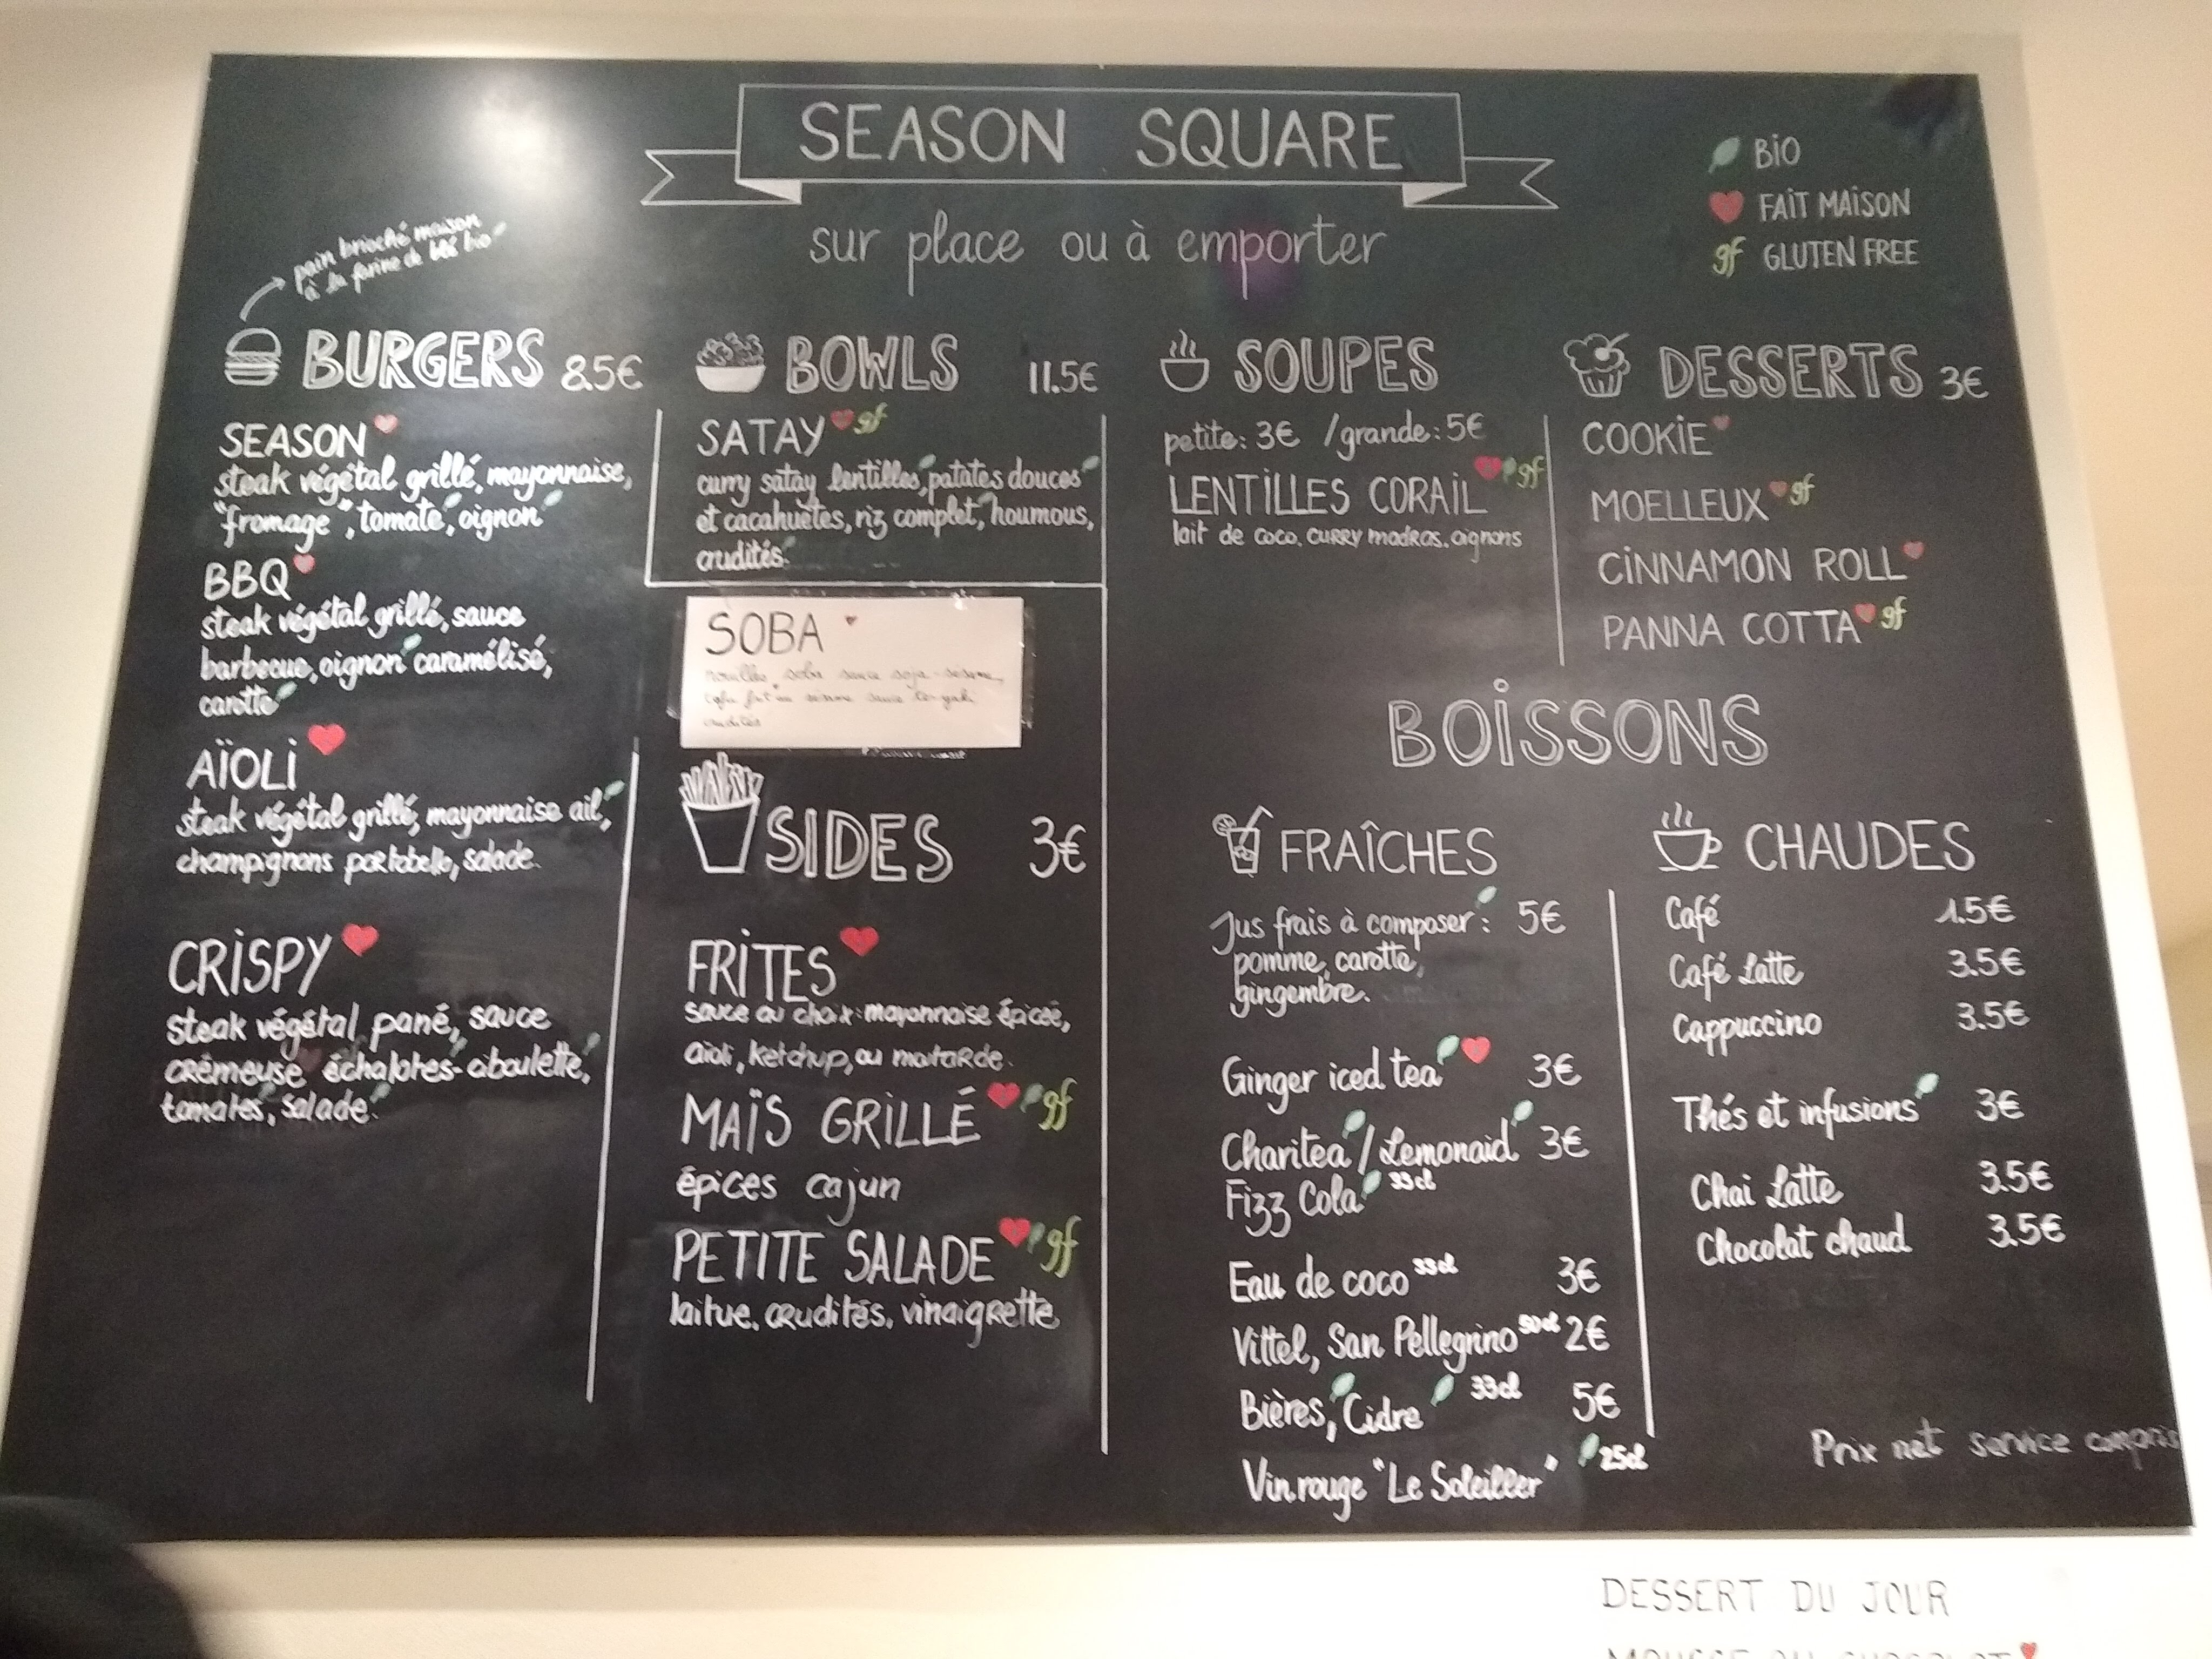 SEASON SQUARE
sur place ou à emporter
BIO
FAIT MAISON
gf GLUTEN FREE
pain brioché maison
à la farine de blé bio
BURGERS 8.5€
SEASON
steak végétal grillé, mayonnaise,
"fromage", tomate, oignon
BBQ
steak végétal grillé, sauce
barbecue, oignon caramélisé,
carotte
AÏOLI
steak végétal grillé, mayonnaise ail,
champignons portobello, salade.
CRISPY
steak végétal pané, sauce
crémeuse échalotes-ciboulette,
tomates, salade.
BOWLS 11.5€
SATAY gf
curry satay lentilles, patates douces
et cacahuètes, riz complet, houmous,
crudités.
SOBA
nouilles soba sauce soja-sésame,
tofu sésame sauce
crudités
SIDES 3€
FRITES
sauce au choix: mayonnaise épicée,
aïoli, ketchup, ou moutarde.
MAÏS GRILLÉ gf
épices cajun
PETITE SALADE gf
laitue, crudités, vinaigrette
SOUPES
petite: 3€ / grande: 5€
LENTILLES CORAIL gf
lait de coco, curry madras, oignons
DESSERTS 3€
COOKIE
MOELLEUX gf
CINNAMON ROLL
PANNA COTTA gf
BOISSONS
FRAÎCHES
Jus frais à composer: 5€
pomme, carotte,
gingembre.
Ginger iced tea 3€
Charitea / Lemonaid 3€
Fizz Cola 33cl
Eau de coco 33cl 3€
Vittel, San Pellegrino 50cl 2€
Bières, Cidre 33cl 5€
Vin rouge "Le Soleiller" 25cl
CHAUDES
Café 1.5€
Café Latte 3.5€
Cappuccino 3.5€
Thés et infusions 3€
Chai Latte 3.5€
Chocolat chaud 3.5€
Prix net service compris
DESSERT DU JOUR
MOUSSE AU CHOCOLAT